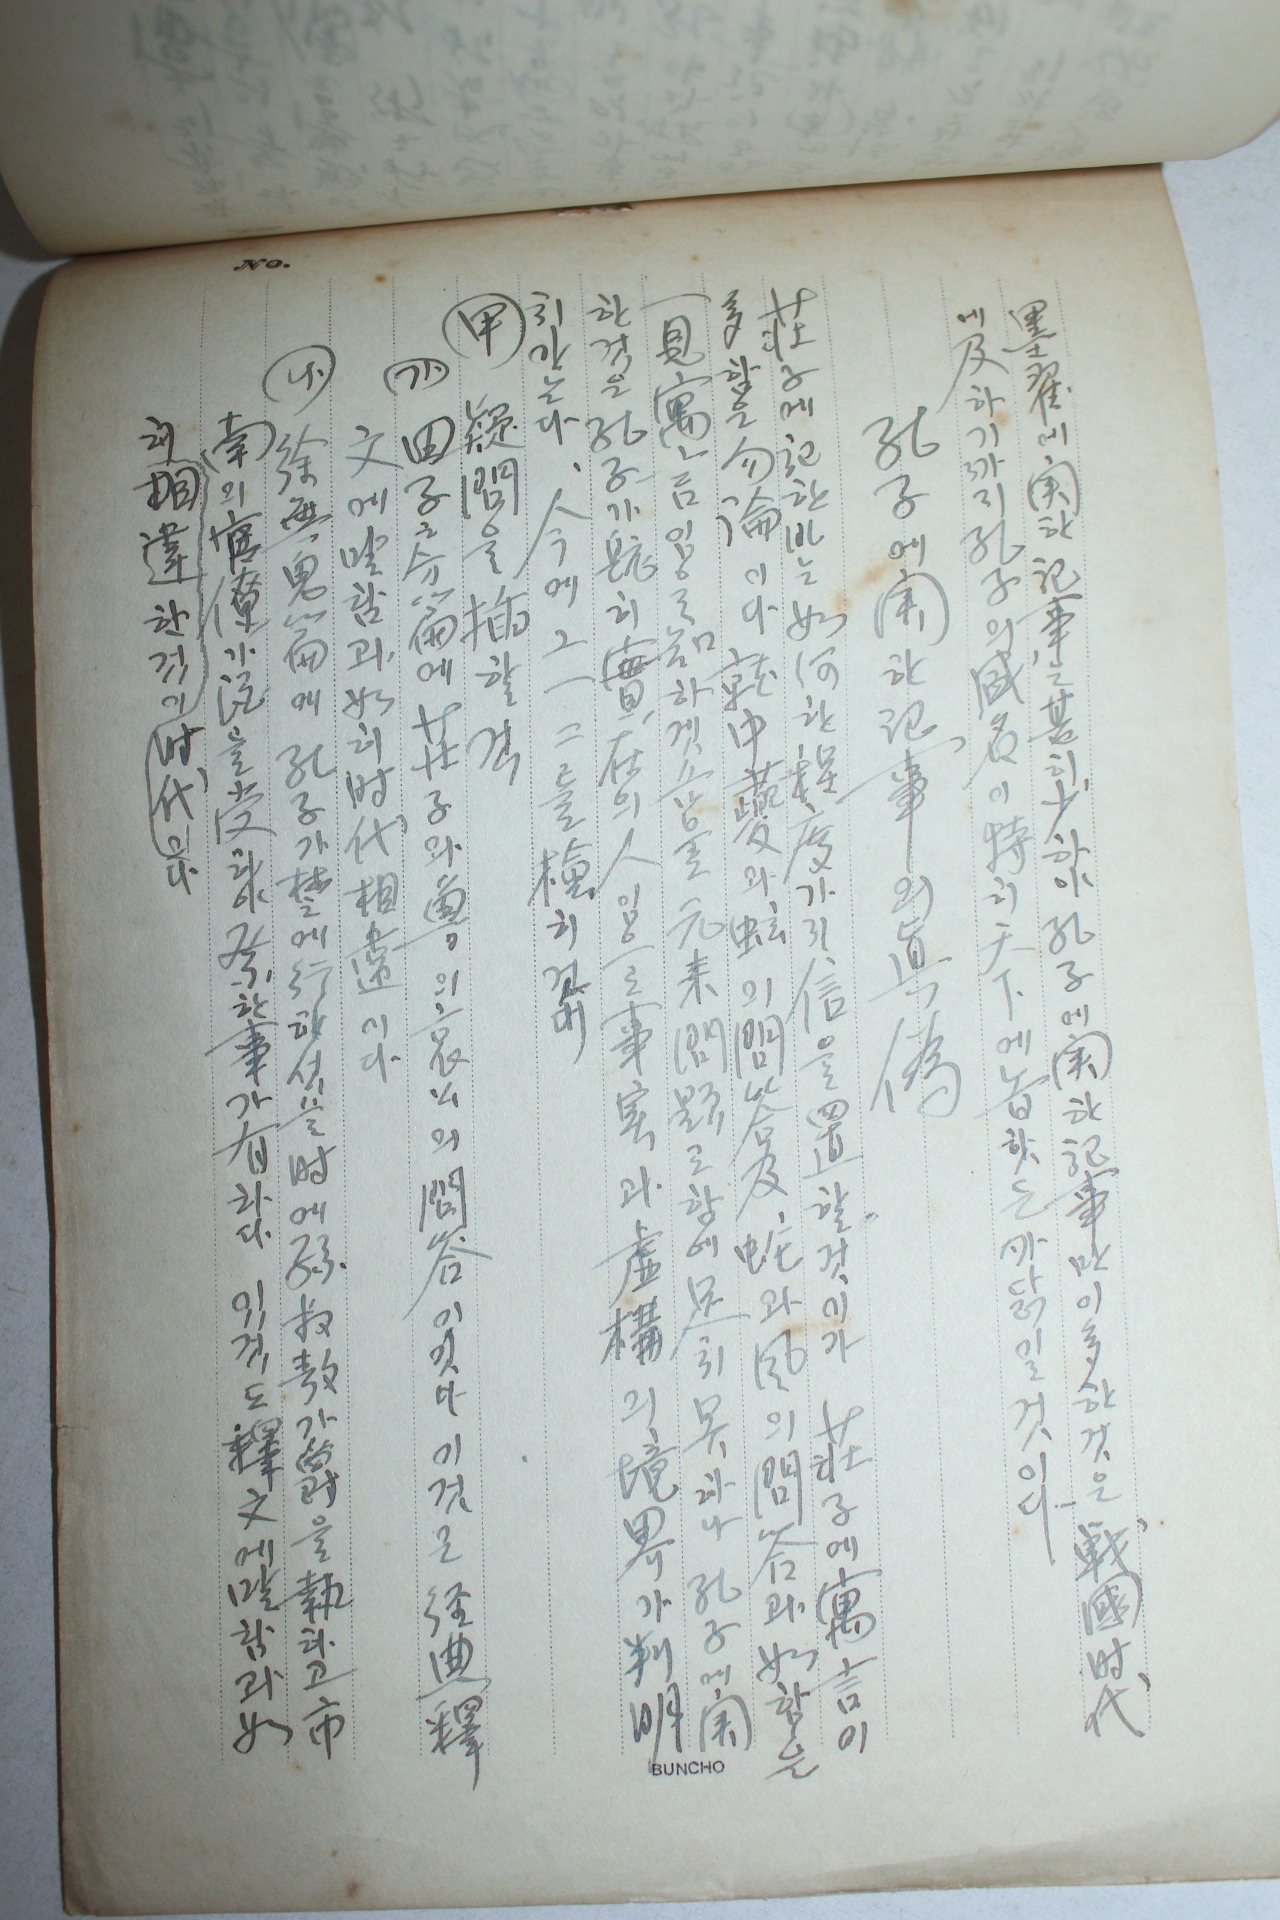 墨翟에 関한 記事는 甚히 少하야 孔子에 関한 記事만이 多한것은 戰國時代
에 及하기까지 孔子의 威名이 特히 天下에 높핫는 까닭일 것이다
孔子에 関한 記事의 眞僞
莊子에 記한바는 如何한 程度가지 信을 置할것인가 莊子에 寓言이
多함은 勿論이다 就中 蘷과 蚿의 問答及 蛇와 風의 問答과 如함은
一見 寓言임을 知하겟슴을 元來 問題로함에 足치 못하나 孔子에 関
한것은 孔子가 旣히 實在의 人임으로 事実과 虛構의 境界가 判明
치 안는다、人今에 그一二를 檢하건대
甲 疑問을 揷할것
가 田子方篇에 莊子와 魯의 哀公의 問答이잇다 이것은 経典釋
文에 말함과 如히 時代相違이다
나 徐無鬼篇에 孔子가 楚에 行하섯을時에 孫叔敖가 爵을 執하고 市
南의 宜僚가 酒을 受하야 祭한 事가 有하다 이것도 釋文에 말함과 如
히 相違한것이 時代이다
No.
BUNCHO